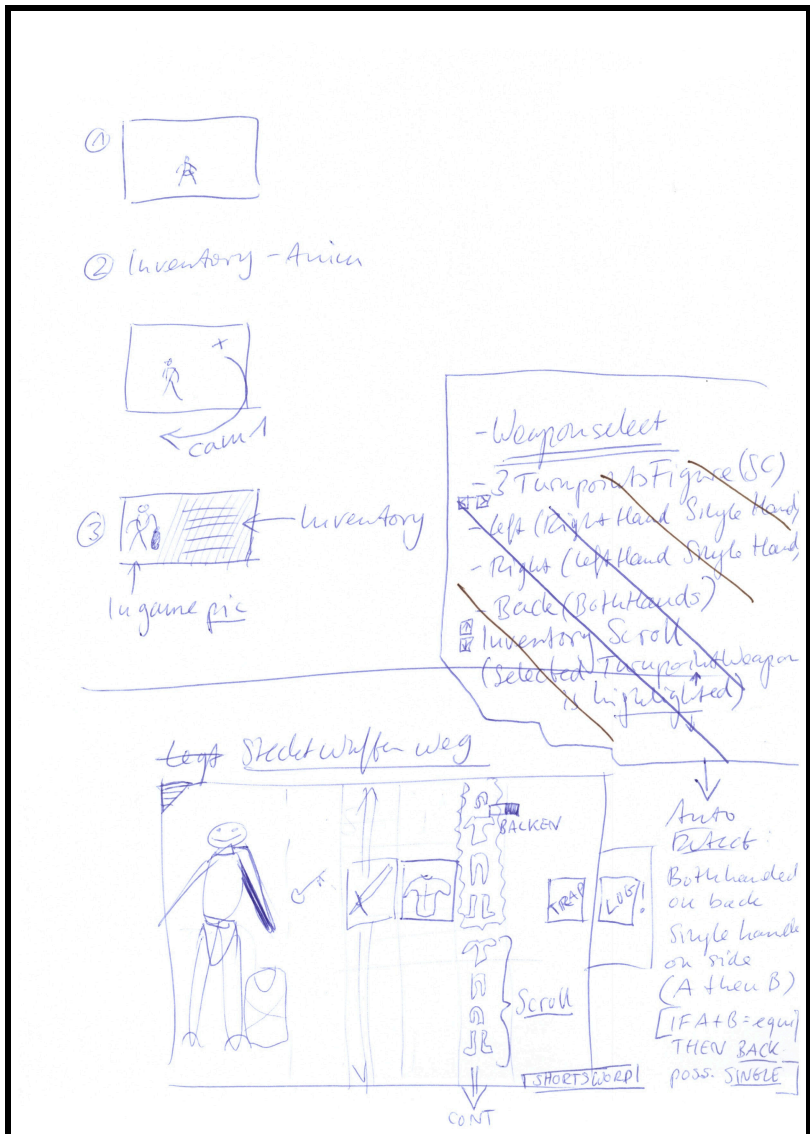 ①
② Inventory - Anim
cam 1
③
Inventory
Ingame pic
- Weaponselect
- 3 Turnpoints Figure (SC)
- Left (Right Hand Single Hand)
- Right (Left Hand Single Hand)
- Back (Both Hands)
Inventory Scroll
(Selected Turnpoint Weapon
is highlighted)
Legt Steckt Waffen weg
BALKEN
TRAP
LOG!
Scroll
SHORTSWORD
CONT
Auto
Detect:
Bothhanded
on back
Single hande
on side
(A then B)
[IF A+B = equi]
THEN BACK
poss. SINGLE]